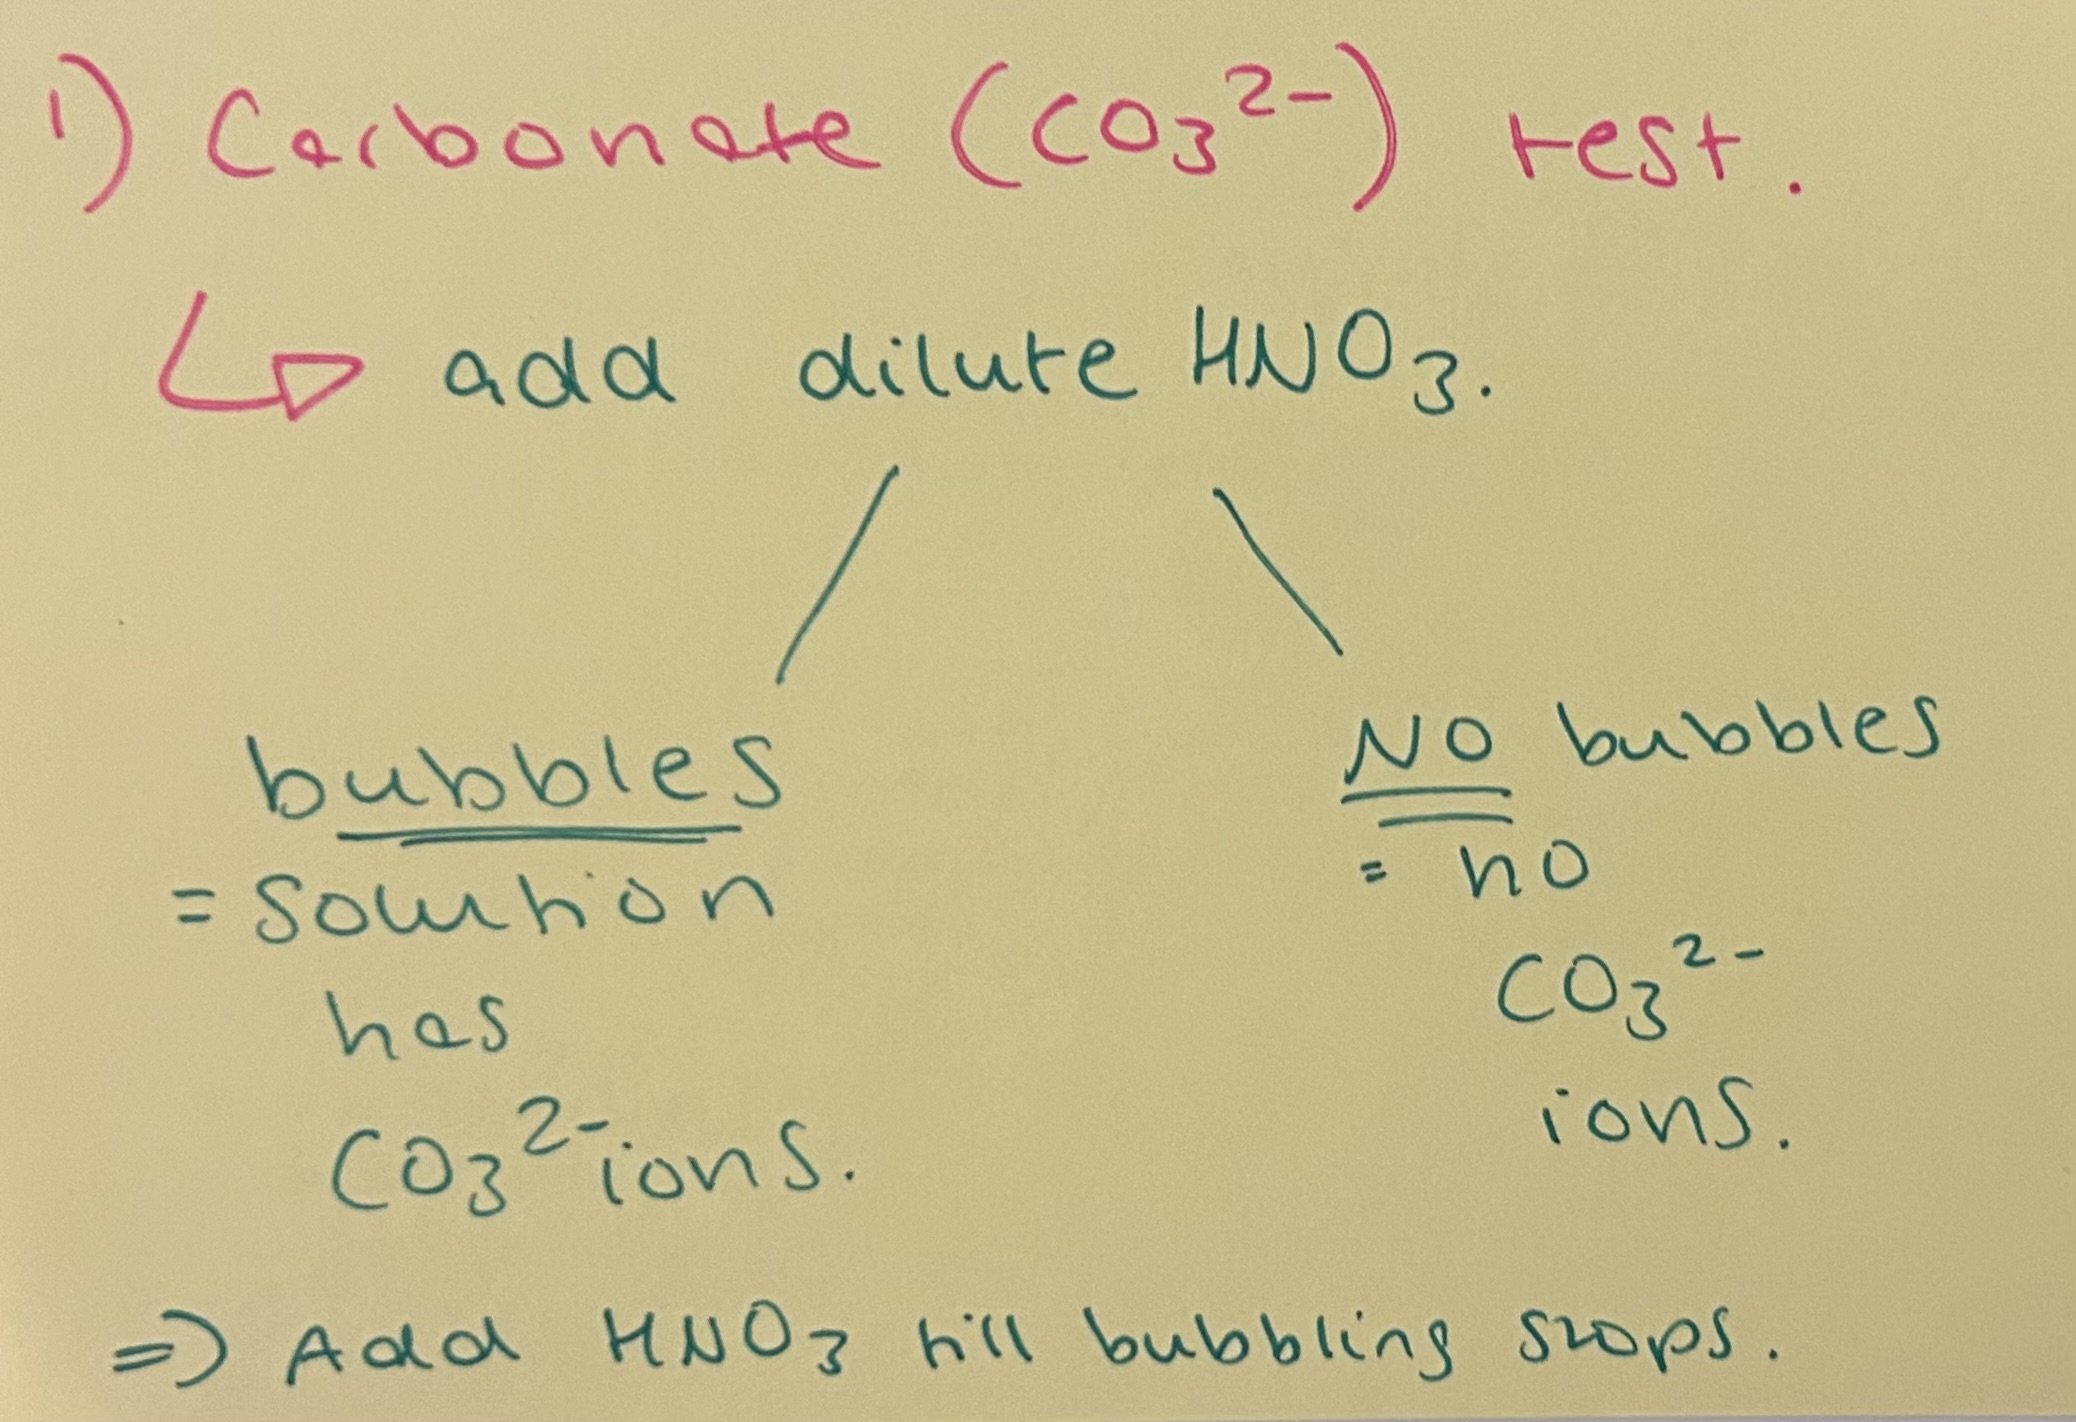 1) Carbonate (CO₃²⁻) test.
add dilute HNO₃.
bubbles
= solution
has
CO₃²⁻ ions.
NO bubbles
= no
CO₃²⁻
ions.
⇒ Add HNO₃ till bubbling stops.